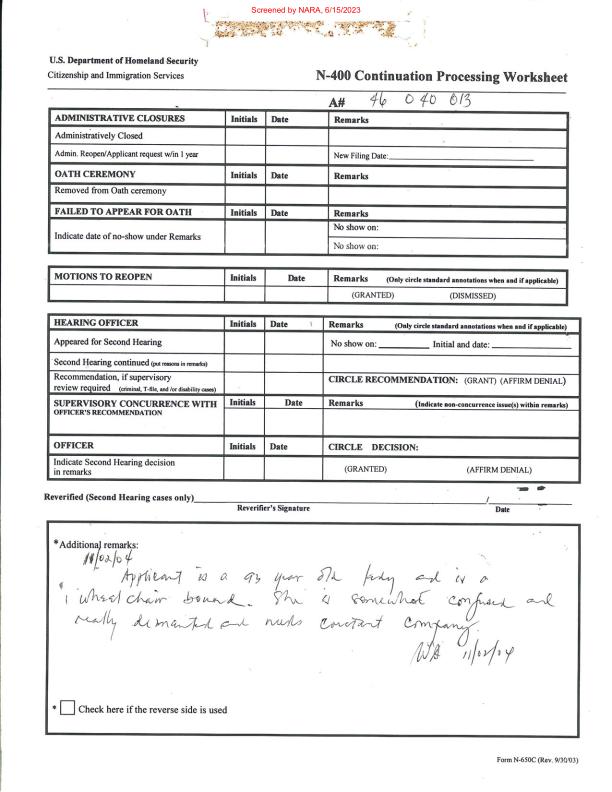 Screened by NARA, 6/15/2023
U.S. Department of Homeland Security
Citizenship and Immigration Services
N-400 Continuation Processing Worksheet
A# 46 040 013
ADMINISTRATIVE CLOSURES Initials Date Remarks
Administratively Closed
Admin. Reopen/Applicant request w/in 1 year New Filing Date:
OATH CEREMONY Initials Date Remarks
Removed from Oath ceremony
FAILED TO APPEAR FOR OATH Initials Date Remarks
No show on:
Indicate date of no-show under Remarks
No show on:
MOTIONS TO REOPEN Initials Date Remarks (Only circle standard annotations when and if applicable)
(GRANTED) (DISMISSED)
HEARING OFFICER Initials Date Remarks (Only circle standard annotations when and if applicable)
Appeared for Second Hearing No show on: Initial and date:
Second Hearing continued (put reasons in remarks)
Recommendation, if supervisory
review required (criminal, T-file, and /or disability cases) CIRCLE RECOMMENDATION: (GRANT) (AFFIRM DENIAL)
SUPERVISORY CONCURRENCE WITH Initials Date Remarks (Indicate non-concurrence issue(s) within remarks)
OFFICER'S RECOMMENDATION
OFFICER Initials Date CIRCLE DECISION:
Indicate Second Hearing decision
in remarks (GRANTED) (AFFIRM DENIAL)
Reverified (Second Hearing cases only) /
Reverifier's Signature Date
*Additional remarks:
11/02/04
Applicant is a 93 year old lady and is a
wheel chair bound. She is somewhat confused and
really demanted and needs constant company.
11/02/04
* Check here if the reverse side is used
Form N-650C (Rev. 9/30/03)